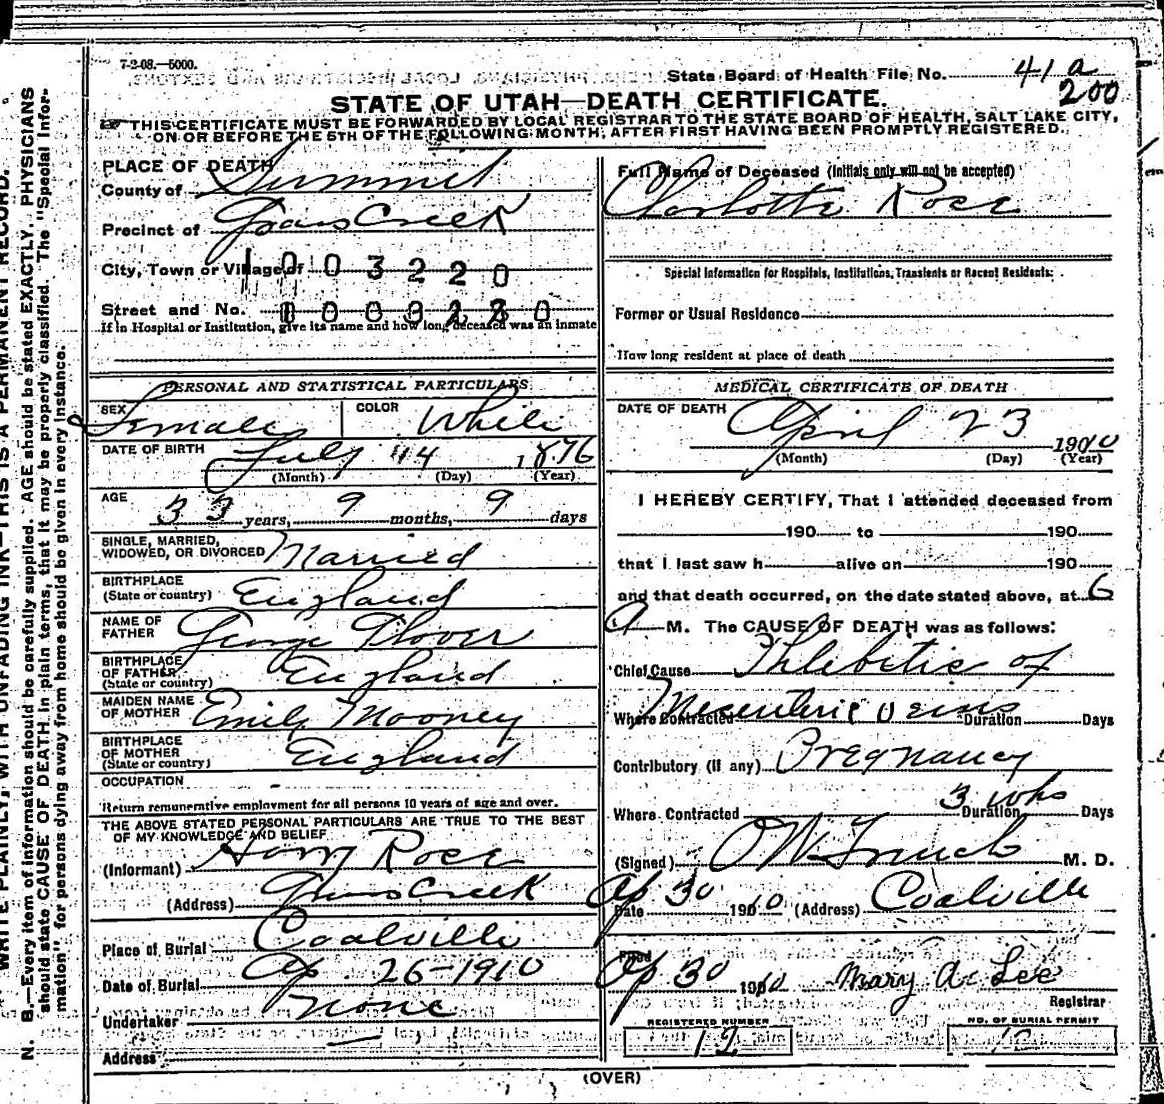 7-2-08.—5000.
State Board of Health File No. 41 a
200
STATE OF UTAH—DEATH CERTIFICATE.
THIS CERTIFICATE MUST BE FORWARDED BY LOCAL REGISTRAR TO THE STATE BOARD OF HEALTH, SALT LAKE CITY,
ON OR BEFORE THE 5TH OF THE FOLLOWING MONTH, AFTER FIRST HAVING BEEN PROMPTLY REGISTERED.
PLACE OF DEATH
County of Summit
Precinct of Grass Creek
City, Town or Village of 1003220
Street and No.
If in Hospital or Institution, give its name and how long deceased was an inmate
PERSONAL AND STATISTICAL PARTICULARS
SEX Female COLOR White
DATE OF BIRTH July 14 1876
(Month) (Day) (Year)
AGE 33 years, 9 months, 9 days
SINGLE, MARRIED,
WIDOWED, OR DIVORCED Married
BIRTHPLACE
(State or country) England
NAME OF
FATHER George Plover
BIRTHPLACE
OF FATHER
(State or country) England
MAIDEN NAME
OF MOTHER Emily Mooney
BIRTHPLACE
OF MOTHER
(State or country) England
OCCUPATION
Return remunerative employment for all persons 10 years of age and over.
THE ABOVE STATED PERSONAL PARTICULARS ARE TRUE TO THE BEST
OF MY KNOWLEDGE AND BELIEF
(Informant) Harry Rose
(Address) Grass Creek
Place of Burial Coalville
Date of Burial Ap 26-1910
Undertaker None
Address
Full Name of Deceased (Initials only will not be accepted)
Charlotte Rose
Special Information for Hospitals, Institutions, Transients or Recent Residents:
Former or Usual Residence
How long resident at place of death
MEDICAL CERTIFICATE OF DEATH
DATE OF DEATH April 23 1910
(Month) (Day) (Year)
I HEREBY CERTIFY, That I attended deceased from
190 to 190
that I last saw h alive on 190
and that death occurred, on the date stated above, at 6
A M. The CAUSE OF DEATH was as follows:
Chief Cause Phlebitis of
Where Contracted Mesenteric veins Duration Days
Contributory (if any) Pregnancy
Where Contracted Duration 3 wks Days
(Signed) M. D.
Date Ap 30 1910 (Address) Coalville
Filed Ap 30 1910 Mary A. Lee
Registrar
REGISTERED NUMBER
12
NO. OF BURIAL PERMIT
(OVER)
N. B.—Every item of information should be carefully supplied. AGE should be stated EXACTLY. PHYSICIANS
should state CAUSE OF DEATH in plain terms, that it may be properly classified. The "Special Infor-
mation" for persons dying away from home should be given in every instance.
WRITE PLAINLY, WITH UNFADING INK—THIS IS A PERMANENT RECORD.